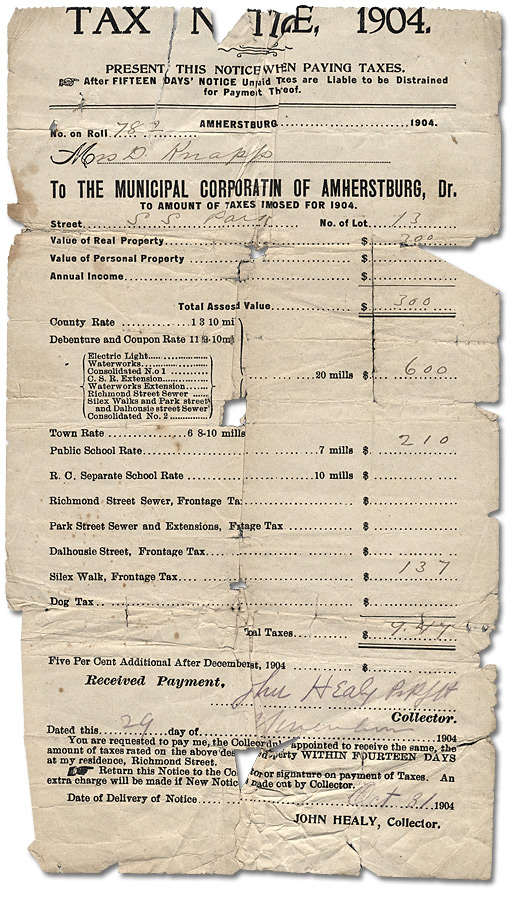 TAX N TICE, 1904.
PRESENT THIS NOTICE WHEN PAYING TAXES.
After FIFTEEN DAYS' NOTICE Unpaid Taxes are Liable to be Distrained
for Payment Th of.
AMHERSTBURG 1904.
No. on Roll 782
Mrs D. Knapp
To THE MUNICIPAL CORPORATI N OF AMHERSTBURG, Dr.
TO AMOUNT OF TAXES IM OSED FOR 1904.
Street S S Park No. of Lot 13
Value of Real Property $ 300
Value of Personal Property $
Annual Income $
Total Assess Value $ 300
County Rate 1 3 10 mi
Debenture and Coupon Rate 11 9-10m
Electric Light
Waterworks
Consolidated No 1
C. S. R. Extension
Waterworks Extension
Richmond Street Sewer
Silex Walks and Park street
and Dalhousie street Sewer
Consolidated No. 2
20 mills $ 600
Town Rate 6 8-10 mills
Public School Rate 7 mills $ 210
R. C. Separate School Rate 10 mills $
Richmond Street Sewer, Frontage Ta $
Park Street Sewer and Extensions, F tage Tax $
Dalhousie Street, Frontage Tax $
Silex Walk, Frontage Tax $ 137
Dog Tax $
tal Taxes $ 9.47
Five Per Cent Additional After Decembe st, 1904 $
Received Payment,
John Healy
Collector.
Dated this 29 day of November 1904
You are requested to pay me, the Collector appointed to receive the same, the
amount of taxes rated on the above des perty WITHIN FOURTEEN DAYS
at my residence, Richmond Street.
Return this Notice to the Co tor or signature on payment of Taxes. An
extra charge will be made if New Notic made out by Collector.
Date of Delivery of Notice Oct 31 1904
JOHN HEALY, Collector.